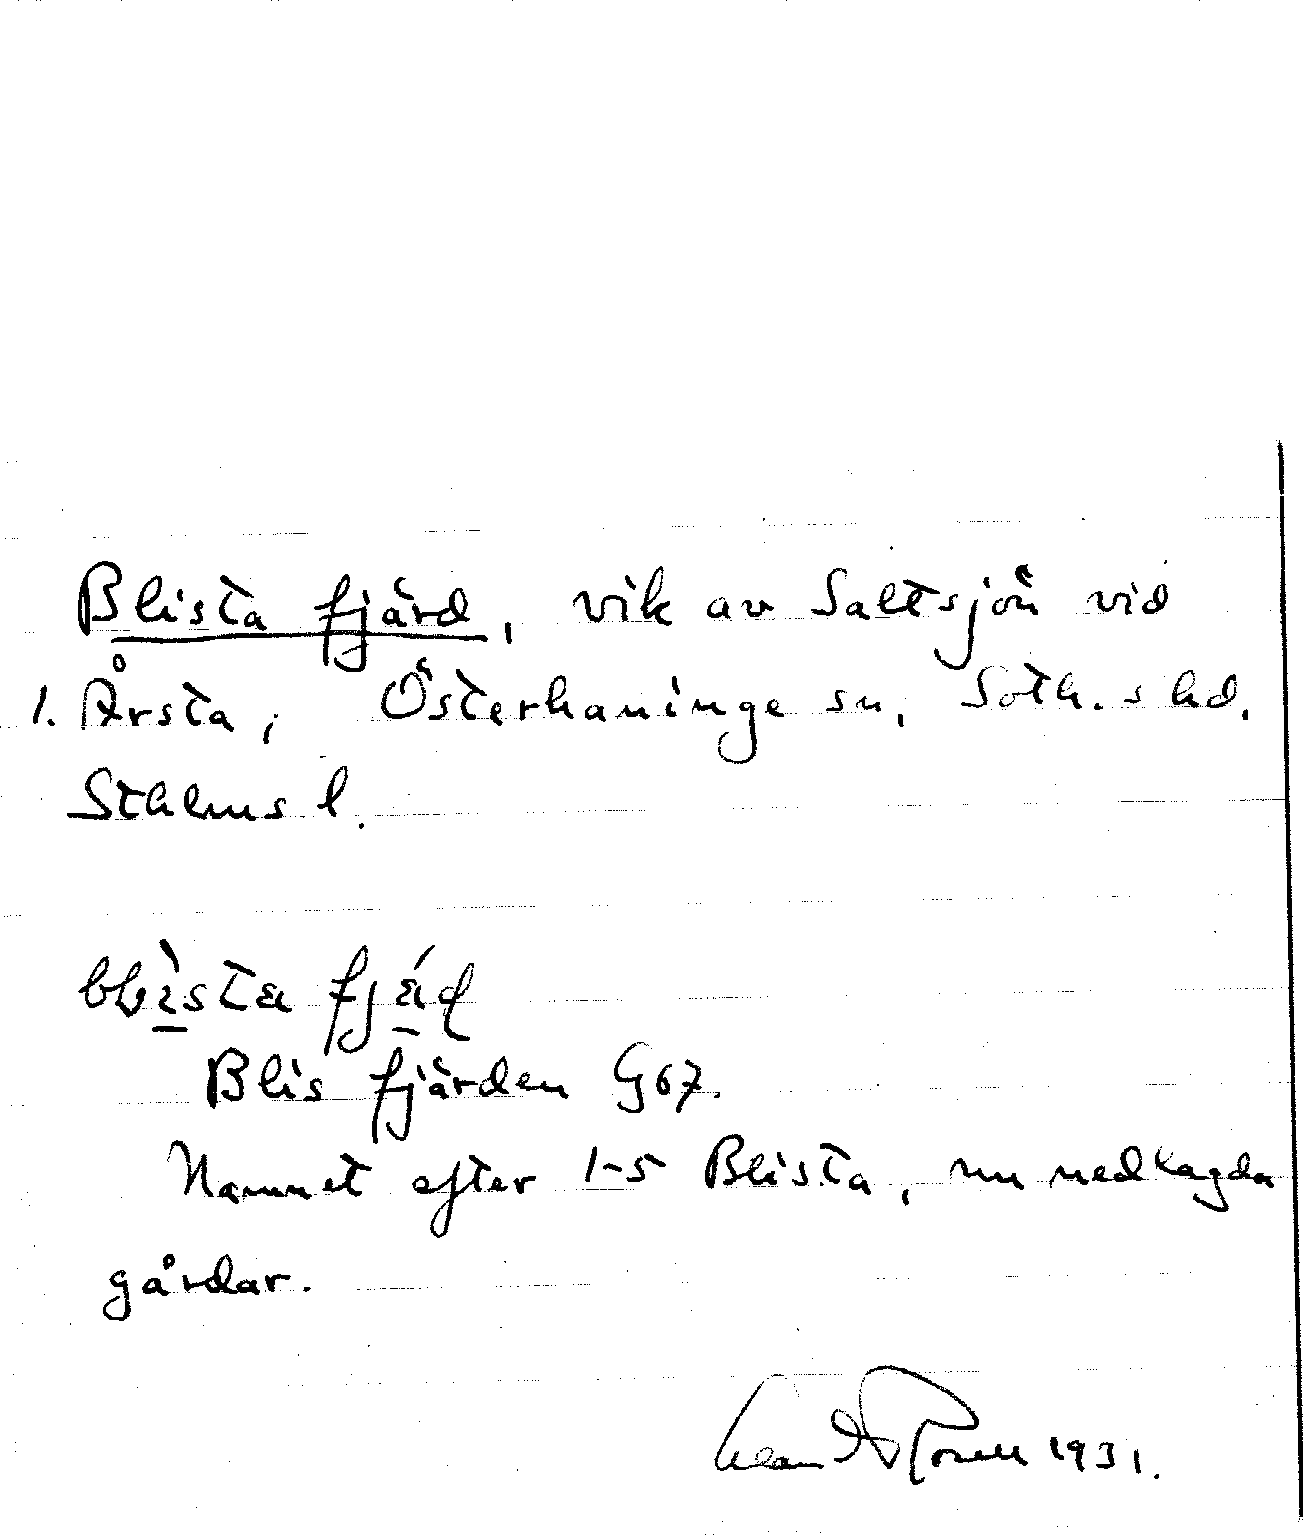 Blista fjärd, vik av Saltsjön vid
1. Årsta, Österhaninge sn, Soth.s hd.
Sthlms l.
Blis fjärden G67.
Namnet efter 1-5 Blista, nu nedlagda
gårdar.
1931.